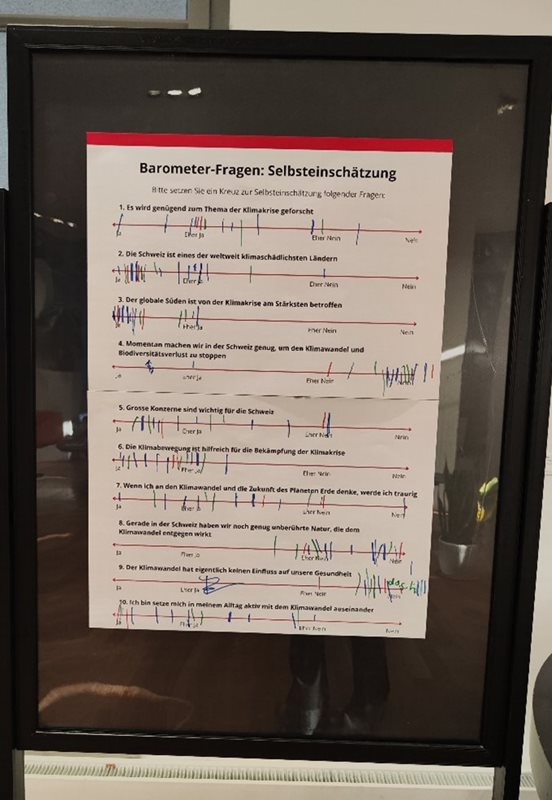 Barometer-Fragen: Selbsteinschätzung
Bitte setzen Sie ein Kreuz zur Selbsteinschätzung folgender Fragen:
1. Es wird genügend zum Thema der Klimakrise geforscht
Ja Eher Ja Eher Nein Nein
2. Die Schweiz ist eines der weltweit klimaschädlichsten Ländern
Ja Eher Ja Eher Nein Nein
3. Der globale Süden ist von der Klimakrise am Stärksten betroffen
Ja Eher Ja Eher Nein Nein
4. Momentan machen wir in der Schweiz genug, um den Klimawandel und
Biodiversitätsverlust zu stoppen
Ja Eher Ja Eher Nein Nein
5. Grosse Konzerne sind wichtig für die Schweiz
Ja Eher Ja Eher Nein Nein
6. Die Klimabewegung ist hilfreich für die Bekämpfung der Klimakrise
Ja Eher Ja Eher Nein Nein
7. Wenn ich an den Klimawandel und die Zukunft des Planeten Erde denke, werde ich traurig
Ja Eher Ja Eher Nein Nein
8. Gerade in der Schweiz haben wir noch genug unberührte Natur, die dem
Klimawandel entgegen wirkt
Ja Eher Ja Eher Nein Nein
9. Der Klimawandel hat eigentlich keinen Einfluss auf unsere Gesundheit
Ja Eher Ja Eher Nein Nein
10. Ich bin setze mich in meinem Alltag aktiv mit dem Klimawandel auseinander
Ja Eher Ja Eher Nein Nein